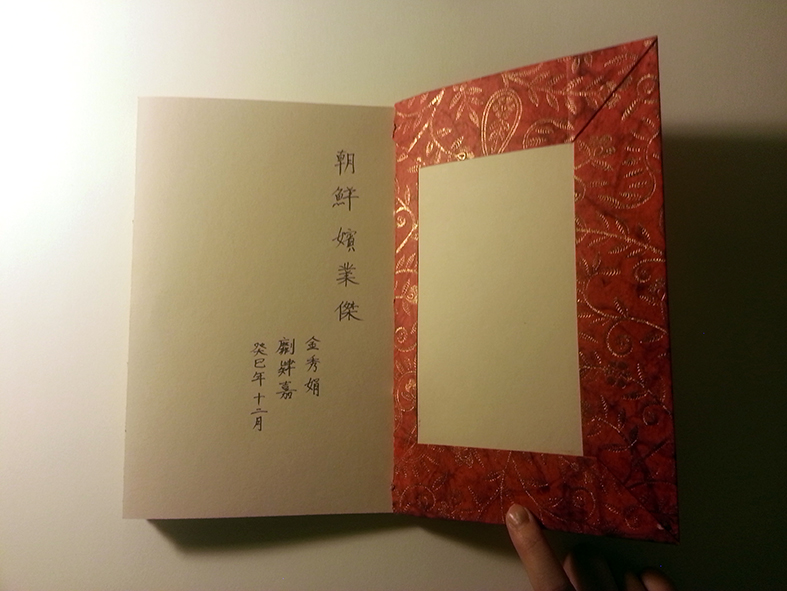 朝鮮嬪業傑
金秀娟
嘉
癸巳年十二月